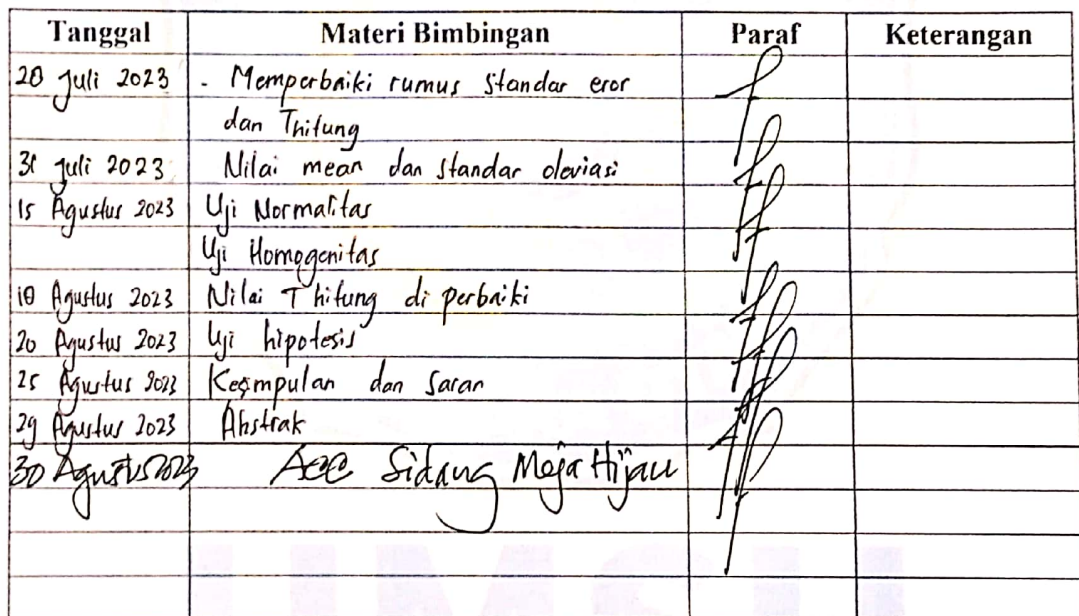 Tanggal Materi Bimbingan Paraf Keterangan
28 Juli 2023 - Memperbaiki rumus standar eror
dan Thitung
31 Juli 2023 Nilai mean dan standar deviasi
15 Agustus 2023 Uji Normalitas
Uji Homogenitas
18 Agustus 2023 Nilai T hitung di perbaiki
20 Agustus 2023 Uji hipotesis
25 Agustus 2023 Kesimpulan dan Saran
29 Agustus 2023 Abstrak
30 Agustus 2023 Acc Sidang Meja Hijau